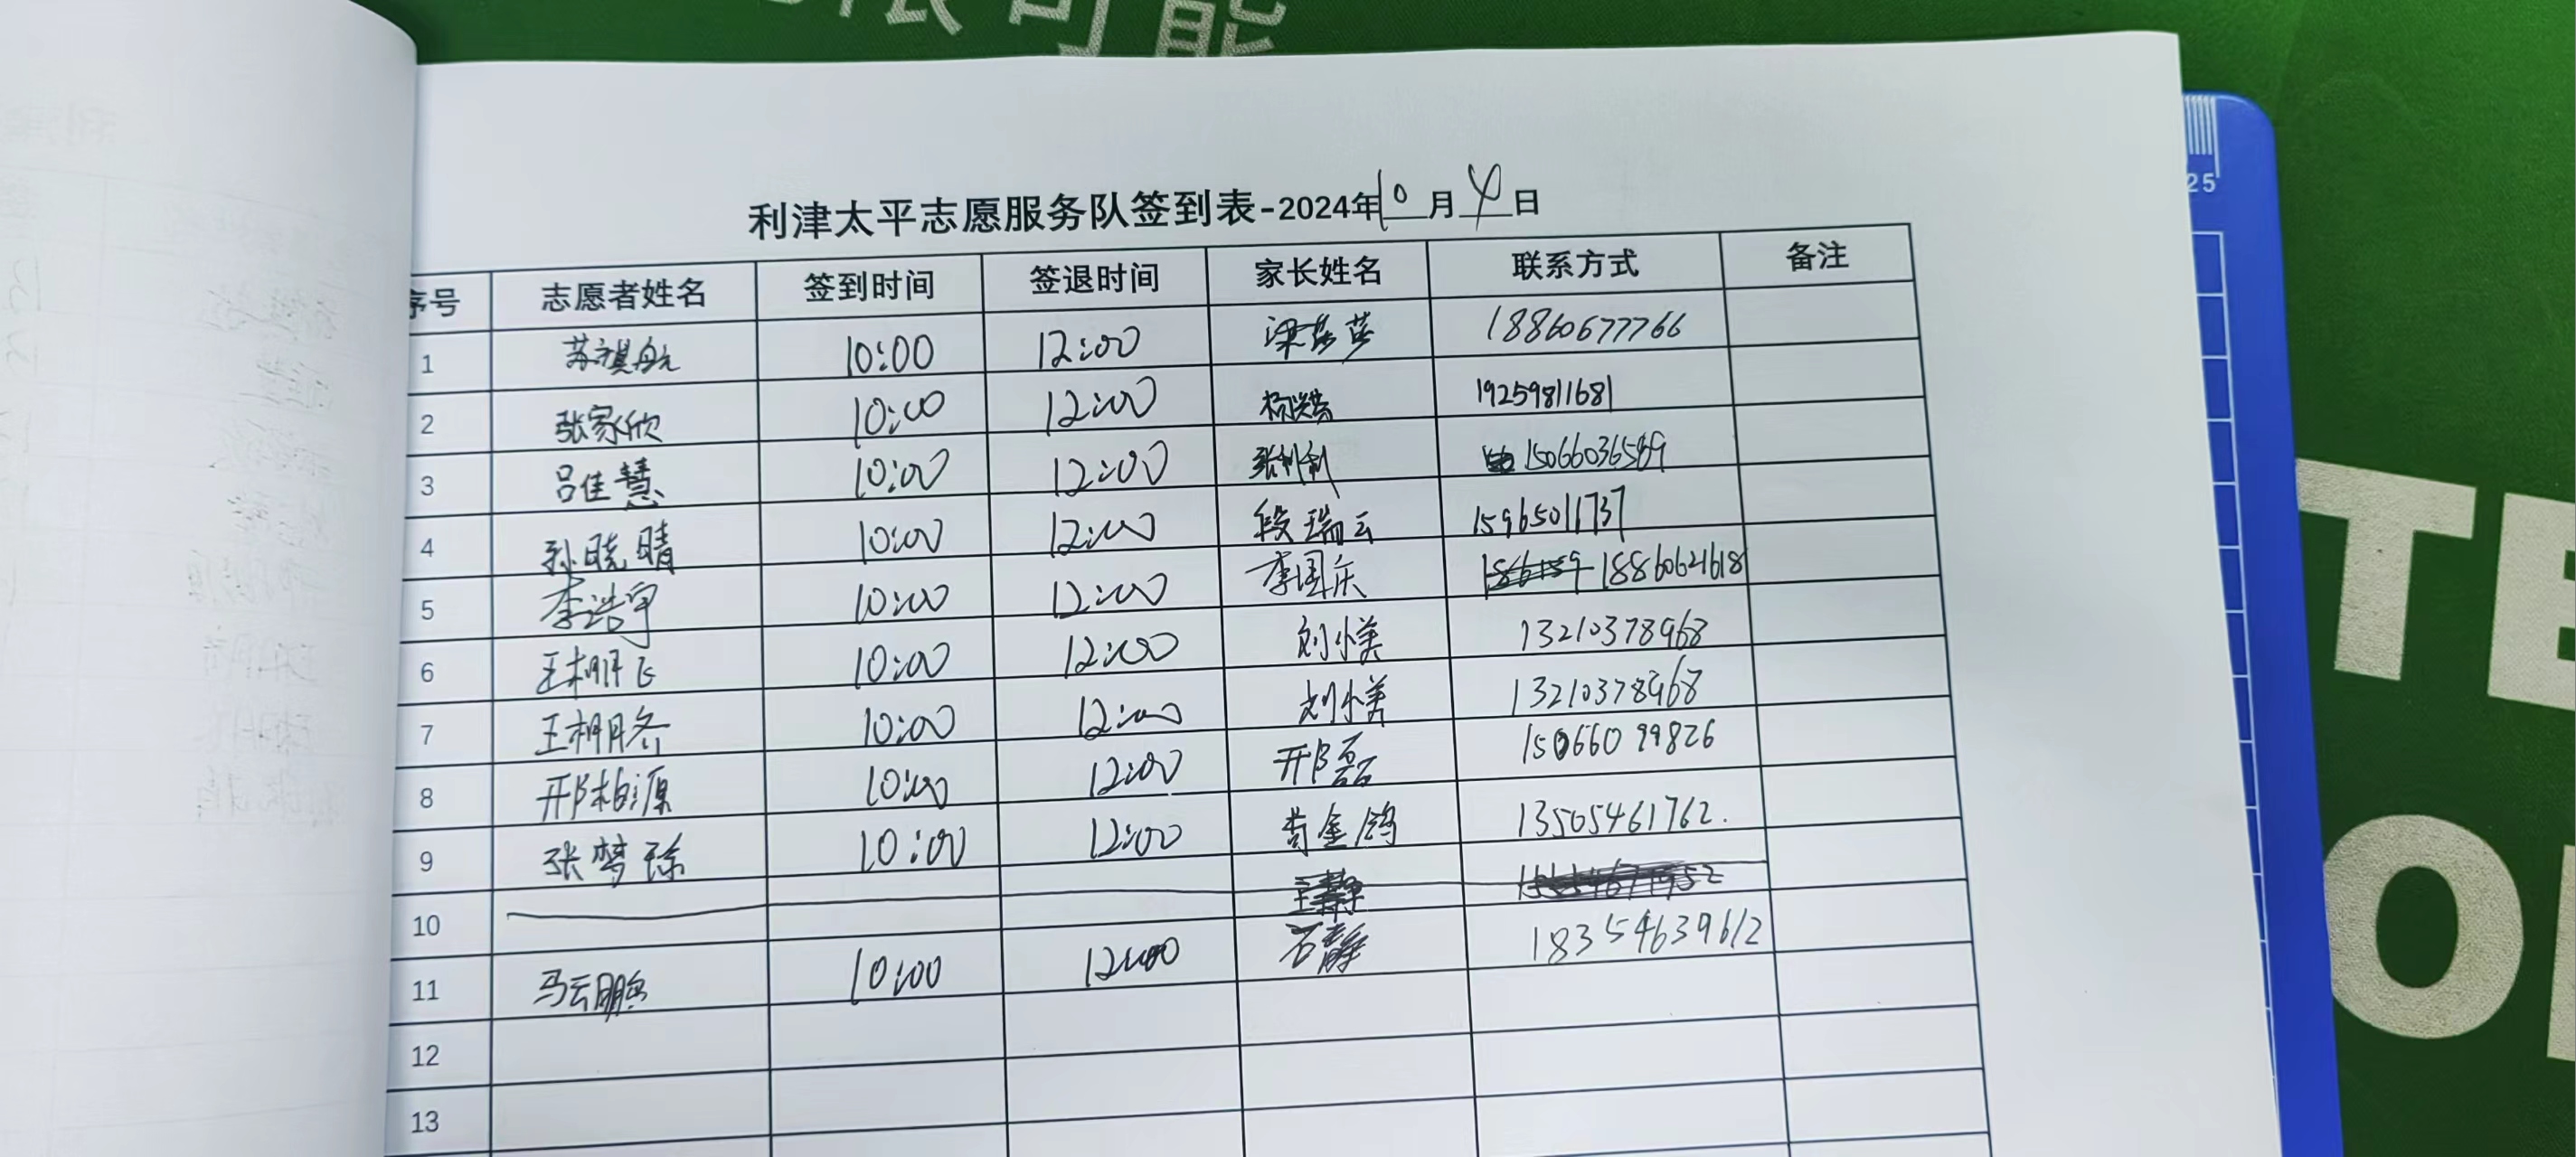 限可能
利津太平志愿服务队签到表-2024年10月4日
序号 志愿者姓名 签到时间 签退时间 家长姓名 联系方式 备注
1 苏祺航 10:00 12:00 梁莎莎 18860677766
2 张家欣 10:00 12:00 19259811681
3 吕佳慧 10:00 12:00 张利利 15066036589
4 孙晓晴 10:00 12:00 段瑞云 15965011737
5 李浩宇 10:00 12:00 李国庆 18860621618
6 王栩飞 10:00 12:00 刘小美 13210378968
7 10:00 12:00 刘小美 13210378968
8 邢柏源 10:00 12:00 邢磊 15066099826
9 张梦琮 10:00 12:00 苟金鸽 13505461762.
10
11 马云鹏 10:00 12:00 石静 18354639612
12
13
25
TE
O